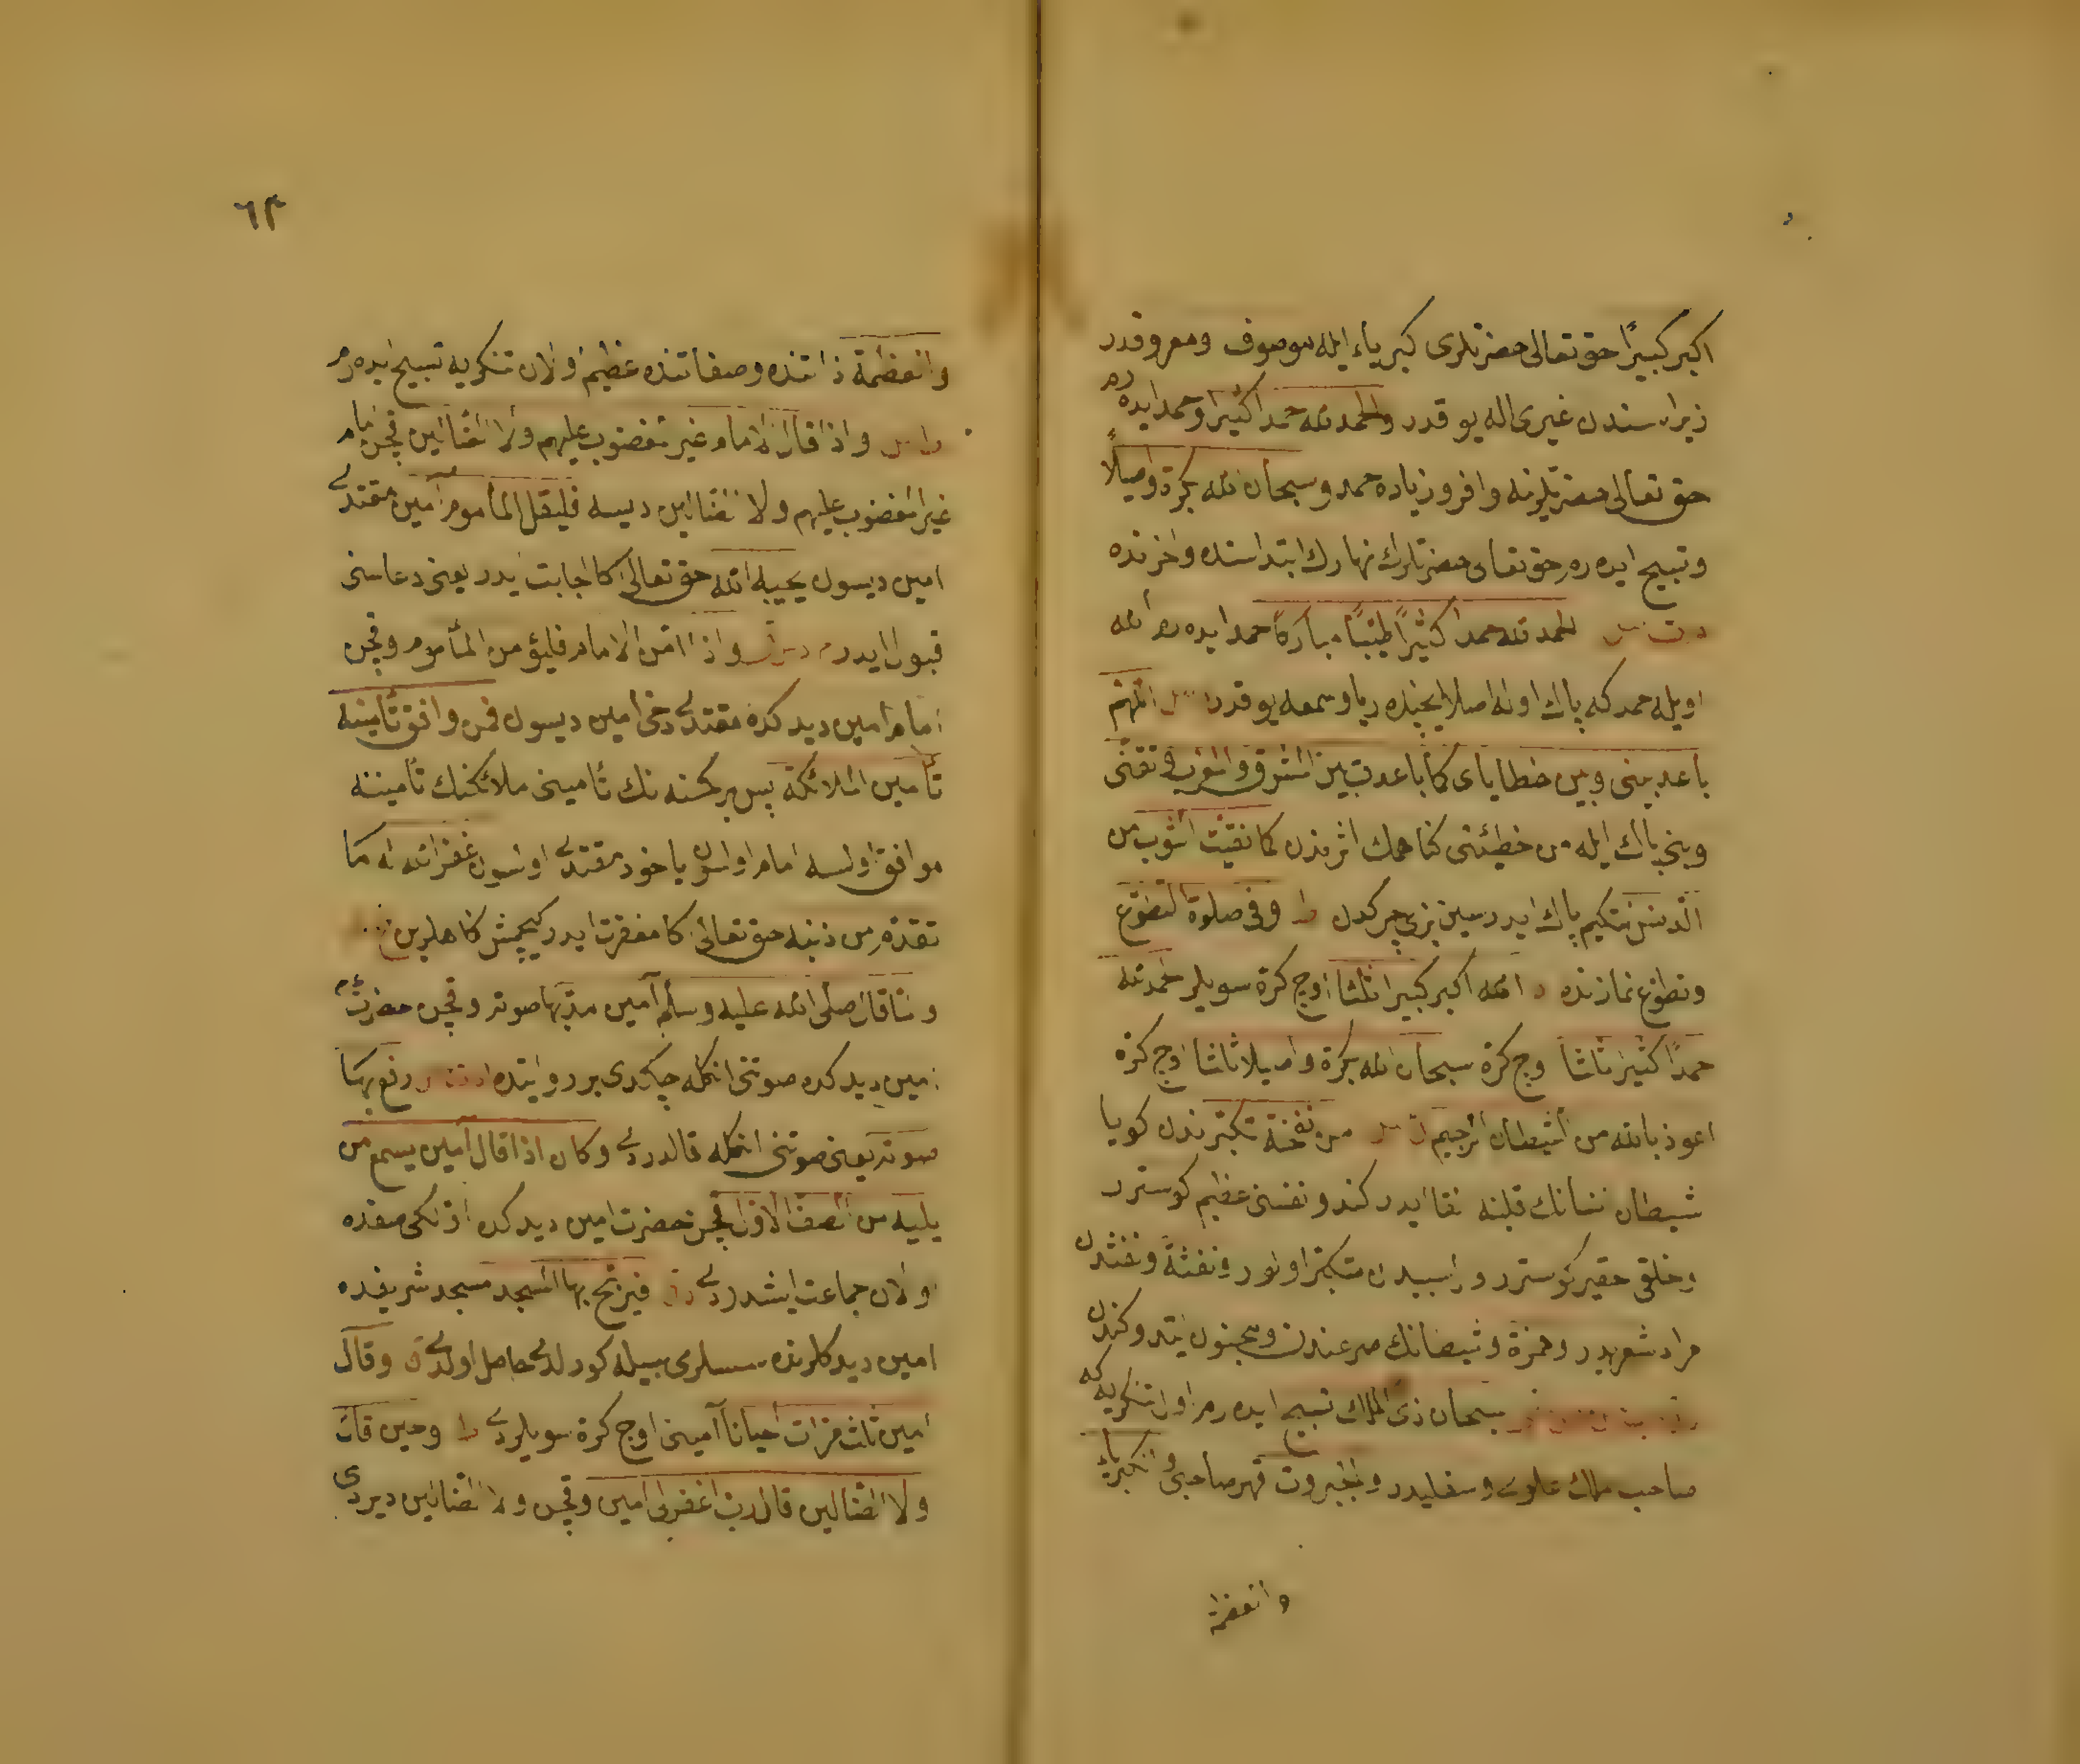 اكبر كبيرًا حق تعالى حضرتلرى كبرياء ايله موصوف ومعروفدر
زيرا سندن غيرى اله يوقدر والحمد لله حمدا كثيرا وحمد ايده رم
حق تعالى حضرتلرينه وافر وزياده حمد وسبحان الله بكرة واصيلًا
وتسبيح ايده رم حق تعالى حضرتلرك نهارك ابتداسنده واخرنده
الحمد لله حمدا كثيرًا طيبًا مباركًا حمد ايده رم الله
اويله حمد كه پاك اوله اصلا ايچنده ريا وسمعه يوقدر اللهم
باعد بينى وبين خطاياى كما باعدت بين المشرق والمغرب ونقنى
وبنى پاك ايله من خطيئتى كناهمك اثرندن كما نقيت الثوب من
الدنس نتكيم پاك ايدرسين بزى چركدن ط وفى صلوة التطوع
وتطوع نمازنده د الله اكبر كبيرا ثلثا اوچ كرة سويلر الحمد لله
حمدًا كثيرا ثلثا اوچ كرة سبحان الله بكرة واصيلا ثلثا اوچ كرة
اعوذ بالله من الشيطان الرجيم من نفخه تكبرندن كويا
شيطان انسانك قلبنه القا ايدر كندو نفسنى عظيم كوستر
وخلقى حقير كوستر و متكبر اولور ونفثه ونفثندن
مراد شعردر وهمزة وشيطانك صرعندن وجنون ايتدوكندن
سبحان ذى الملك تسبيح ايده رم اول تنكريه كه
صاحب ملك علوى وسفليدر والجبروت قهر صاحبى والكبرياء
والعظمة
٦٣
والعظمة ذاتنده وصفاتنده عظيم اولان تنكريه تسبيح ايده رم
واذا قال الامام غير المغضوب عليهم ولا الضالين قچن امام
غير المغضوب عليهم ولا الضالين ديسه فليقل المأموم آمين مقتدى
امين ديسون يجيبه الله حق تعالى اكا اجابت ايدر يعنى دعاسنى
قبول ايدر واذا امن الامام فليؤمن المأموم وقچن
امام امين ديدكده مقتدى دخى امين ديسون فمن وافق تأمينه
تأمين الملائكة پس هر كمسنه نك تأمينى ملائكه نك تأميننه
موافق اولسه امام اولسون ياخود مقتدى اولسون غفر الله له ما
تقدم من ذنبه حق تعالى اكا مغفرت ايدر كچمش كناهلرين
ولما قال صلى الله عليه وسلم آمين مد بها صوته وقچن حضرت
امين ديدكده صوتنى انكله چكدى بر روايتده رفع بها
صوته يعنى صوتنى انكله قالدردى وكان اذا قال آمين يسمع من
يليه من الصف الاول قچن حضرت امين ديدكده اولكى صفده
اولان جماعت ايشدردى فيرتج بها المسجد مسجد شريفده
امين ديدكلرنده سسلرى سببيله كورلدى حاصل اولدى وقال
امين ثلث مرات احيانا آمينى اوچ كرة سويلردى ط وحين قال
ولا الضالين قال رب اغفر لى امين وقچن ولا الضالين ديردى